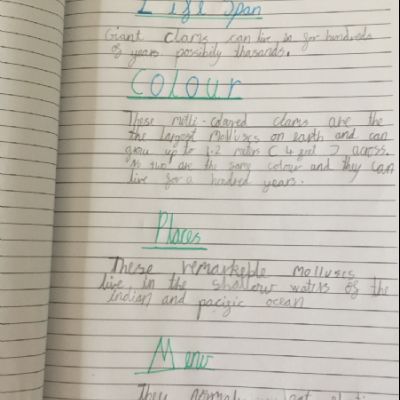 Life Span
Giant clams can live in for hundreds
of years possibily thasands.
Colour
These molti-colared clams are the
the largest Molluscs on earth and can
grow up to 1.2 meters ( 4 feet ) across.
No two are the same colour and they can
live for a hundred years.
Places
These remarkeble molluses
live in the shallow waters of the
indian and pacific ocean
Menu
They normal eat